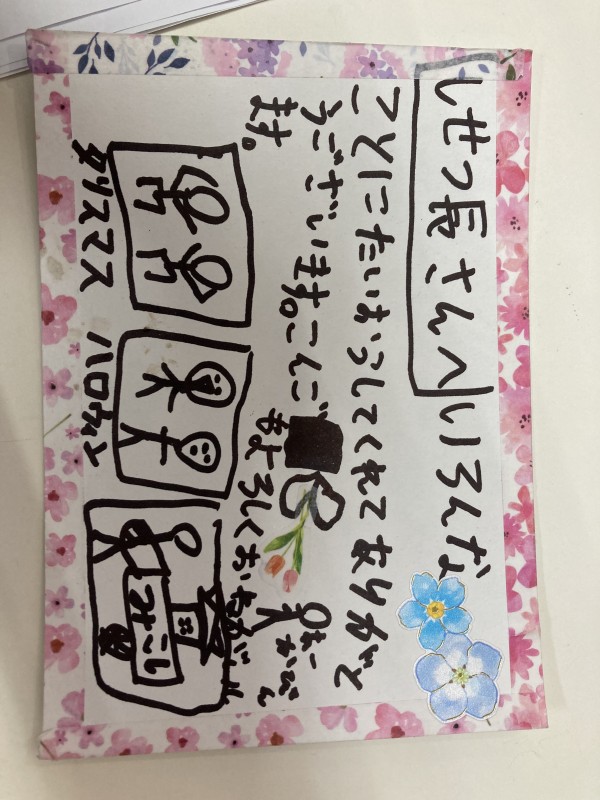 しせつ長さんへ
いろんな
ことにたいおうしてくれてありがと
うございます。こんご
もよろしくおねがいし
ます。
クリスマス
ハロウィン
みこし